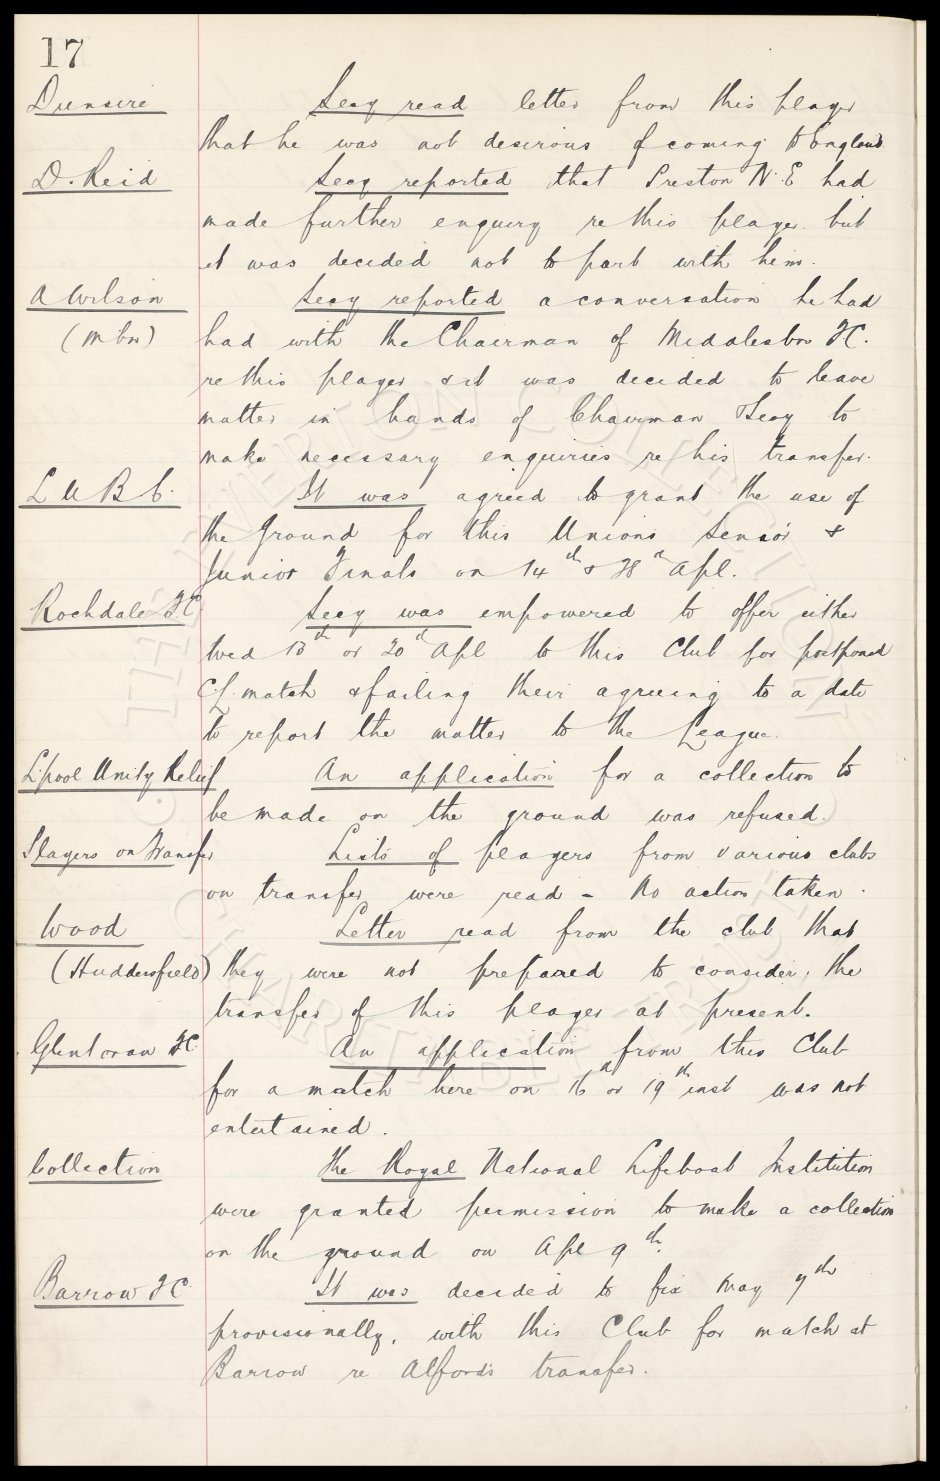 17
Dunsire Secy read letter from this player
that he was not desirous of coming to England.
D. Reid Secy reported that Preston N.E had
made further enquiry re this player but
it was decided not to part with him.
A Wilson Secy reported a conversation he had
(M'bro) had with the Chairman of Middlesbro FC.
re this player & it was decided to leave
matter in hands of Chairman & Secy to
make necessary enquiries re his transfer.
L U B C. It was agreed to grant the use of
the Ground for this Unions Senior &
Junior Finals on 14th & 28th Apl.
Rochdale FC Secy was empowered to offer either
Wed 13th or 20th Apl to this Club for postponed
CL. match & failing their agreeing to a date
to report the matter to the League.
L'pool Unity Relief An application for a collection to
be made on the ground was refused.
Players on Transfer Lists of players from various clubs
on transfer were read - No action taken.
Wood Letter read from the club that
(Huddersfield) they were not prepared to consider, the
transfer of this player at present.
Glentoran FC. An application from this Club
for a match here on 16th or 19th inst was not
entertained.
Collection The Royal National Lifeboat Institution
were granted permission to make a collection
on the ground on Apl 9th.
Barrow FC. It was decided to fix May 7th
provisionally, with this Club for match at
Barrow re Alford's transfer.
THE EVERTON COLLECTION
CHARITABLE TRUST